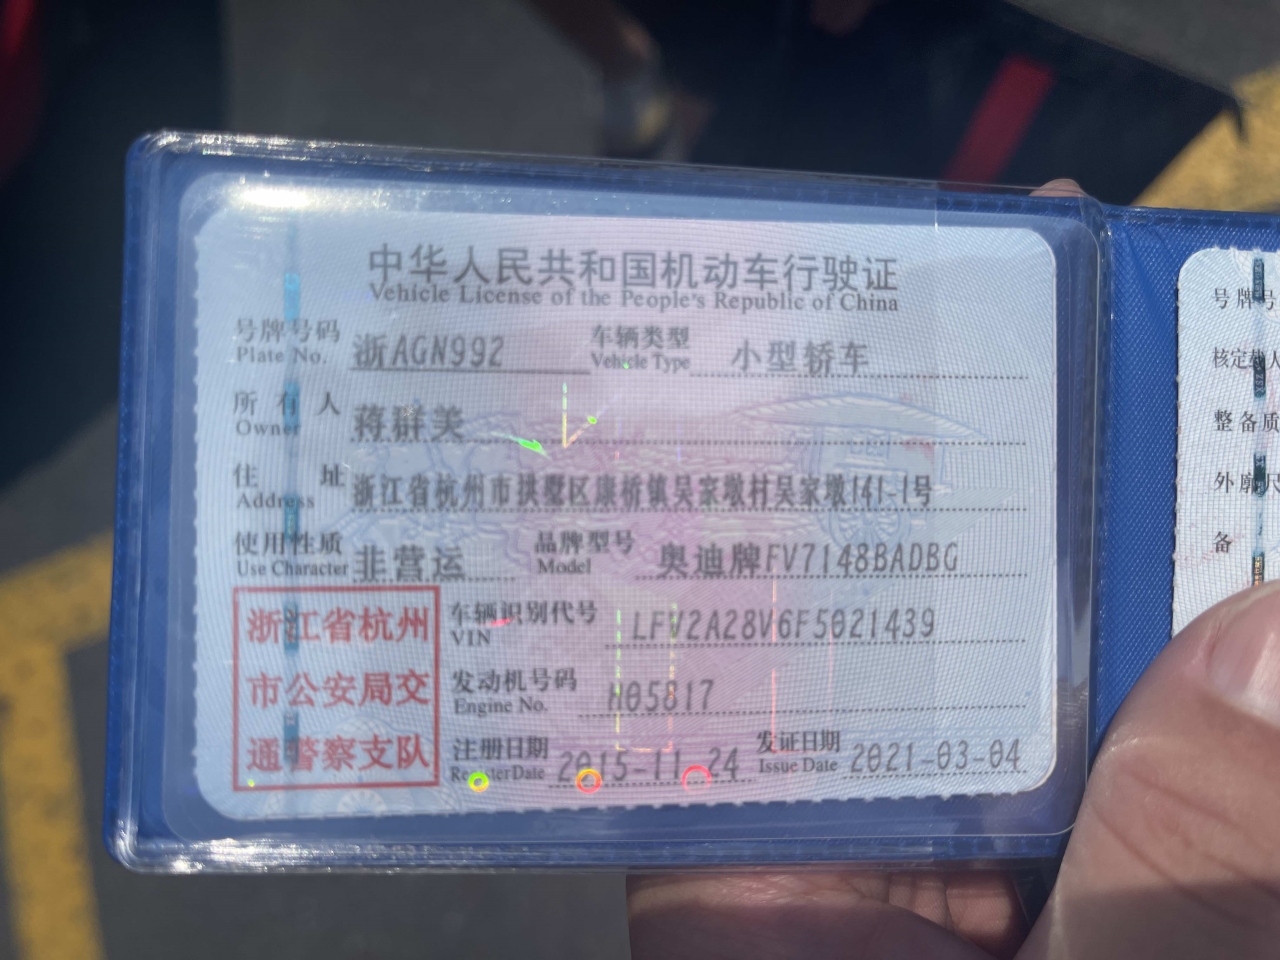 中华人民共和国机动车行驶证
Vehicle License of the People's Republic of China
号牌号码 浙AGN992 车辆类型 小型轿车
Plate No. Vehicle Type
所有人 蒋群美
Owner
住址 浙江省杭州市拱墅区康桥镇吴家墩村吴家墩141-1号
Address
使用性质 非营运 品牌型号 奥迪牌FV7148BADBG
Use Character Model
浙江省杭州
市公安局交
通警察支队
车辆识别代号 LFV2A28V6F5021439
VIN
发动机号码 H05817
Engine No.
注册日期 2015-11-24 发证日期 2021-03-04
Register Date Issue Date
号牌号
核定载人
整备质
外廓尺
备